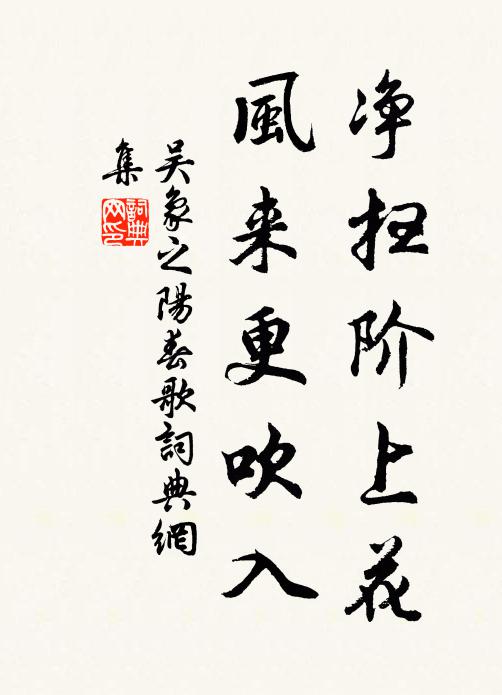 净扫阶上花
風来更吹入
吴象之陽春歌詞典網
集
詞典
网印